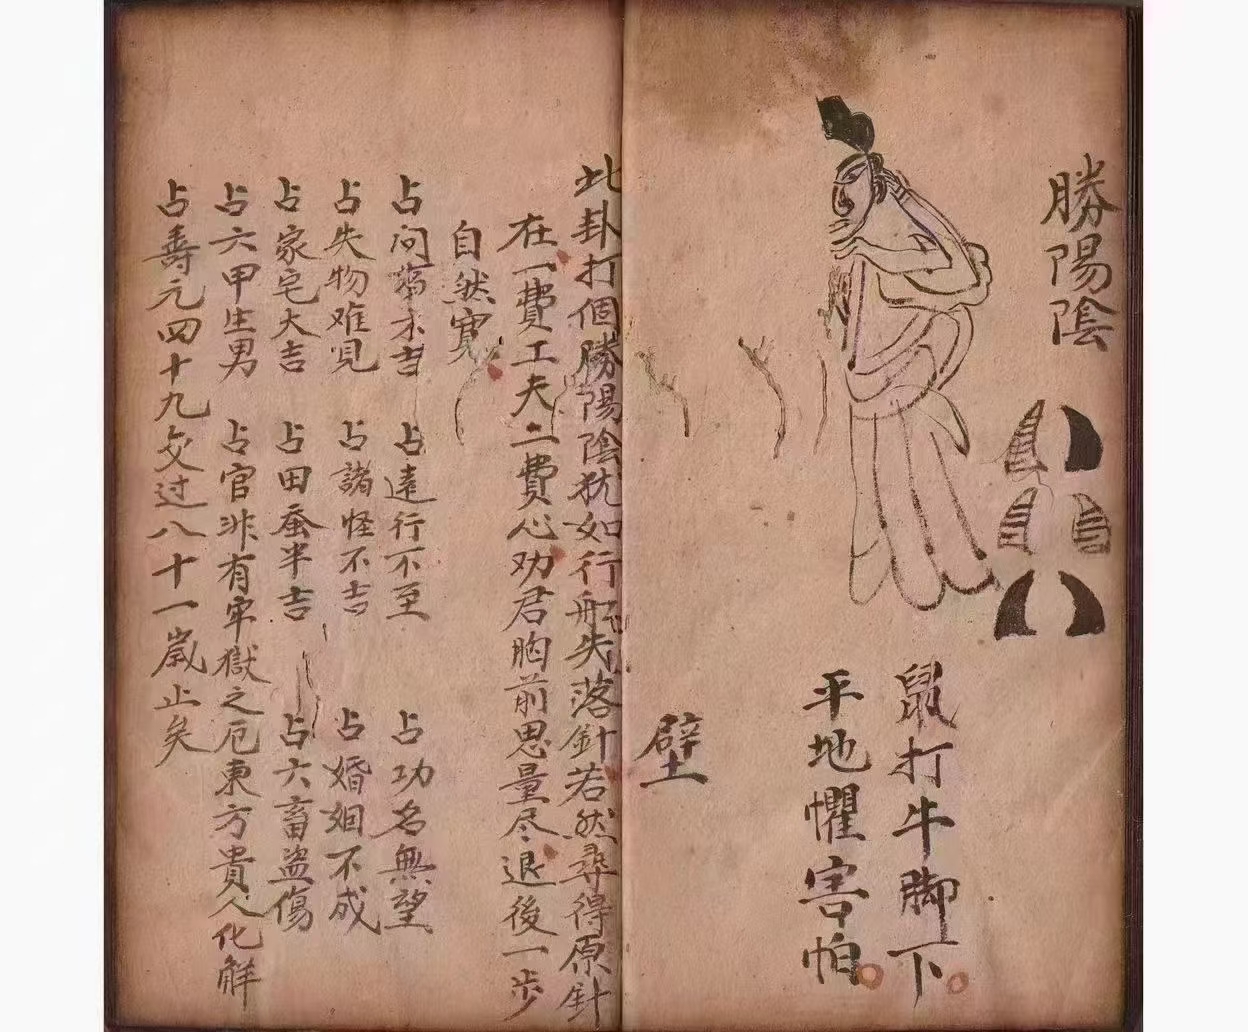 勝陽陰
鼠打牛脚下
平地懼害怕
壁
此卦打個勝陽陰犹如行船失落針若然尋得原針
在一費工夫二費心劝君胸前思量尽退後一步
自然寛
占问 不吉 占遠行不至 占功名無望
占失物难見 占諸怪不吉 占婚姻不成
占家宅大吉 占田蚕半吉 占六畜盗傷
占六甲生男 占官非有牢獄之厄東方貴人化解
占壽元四十九交过八十一嵗止矣